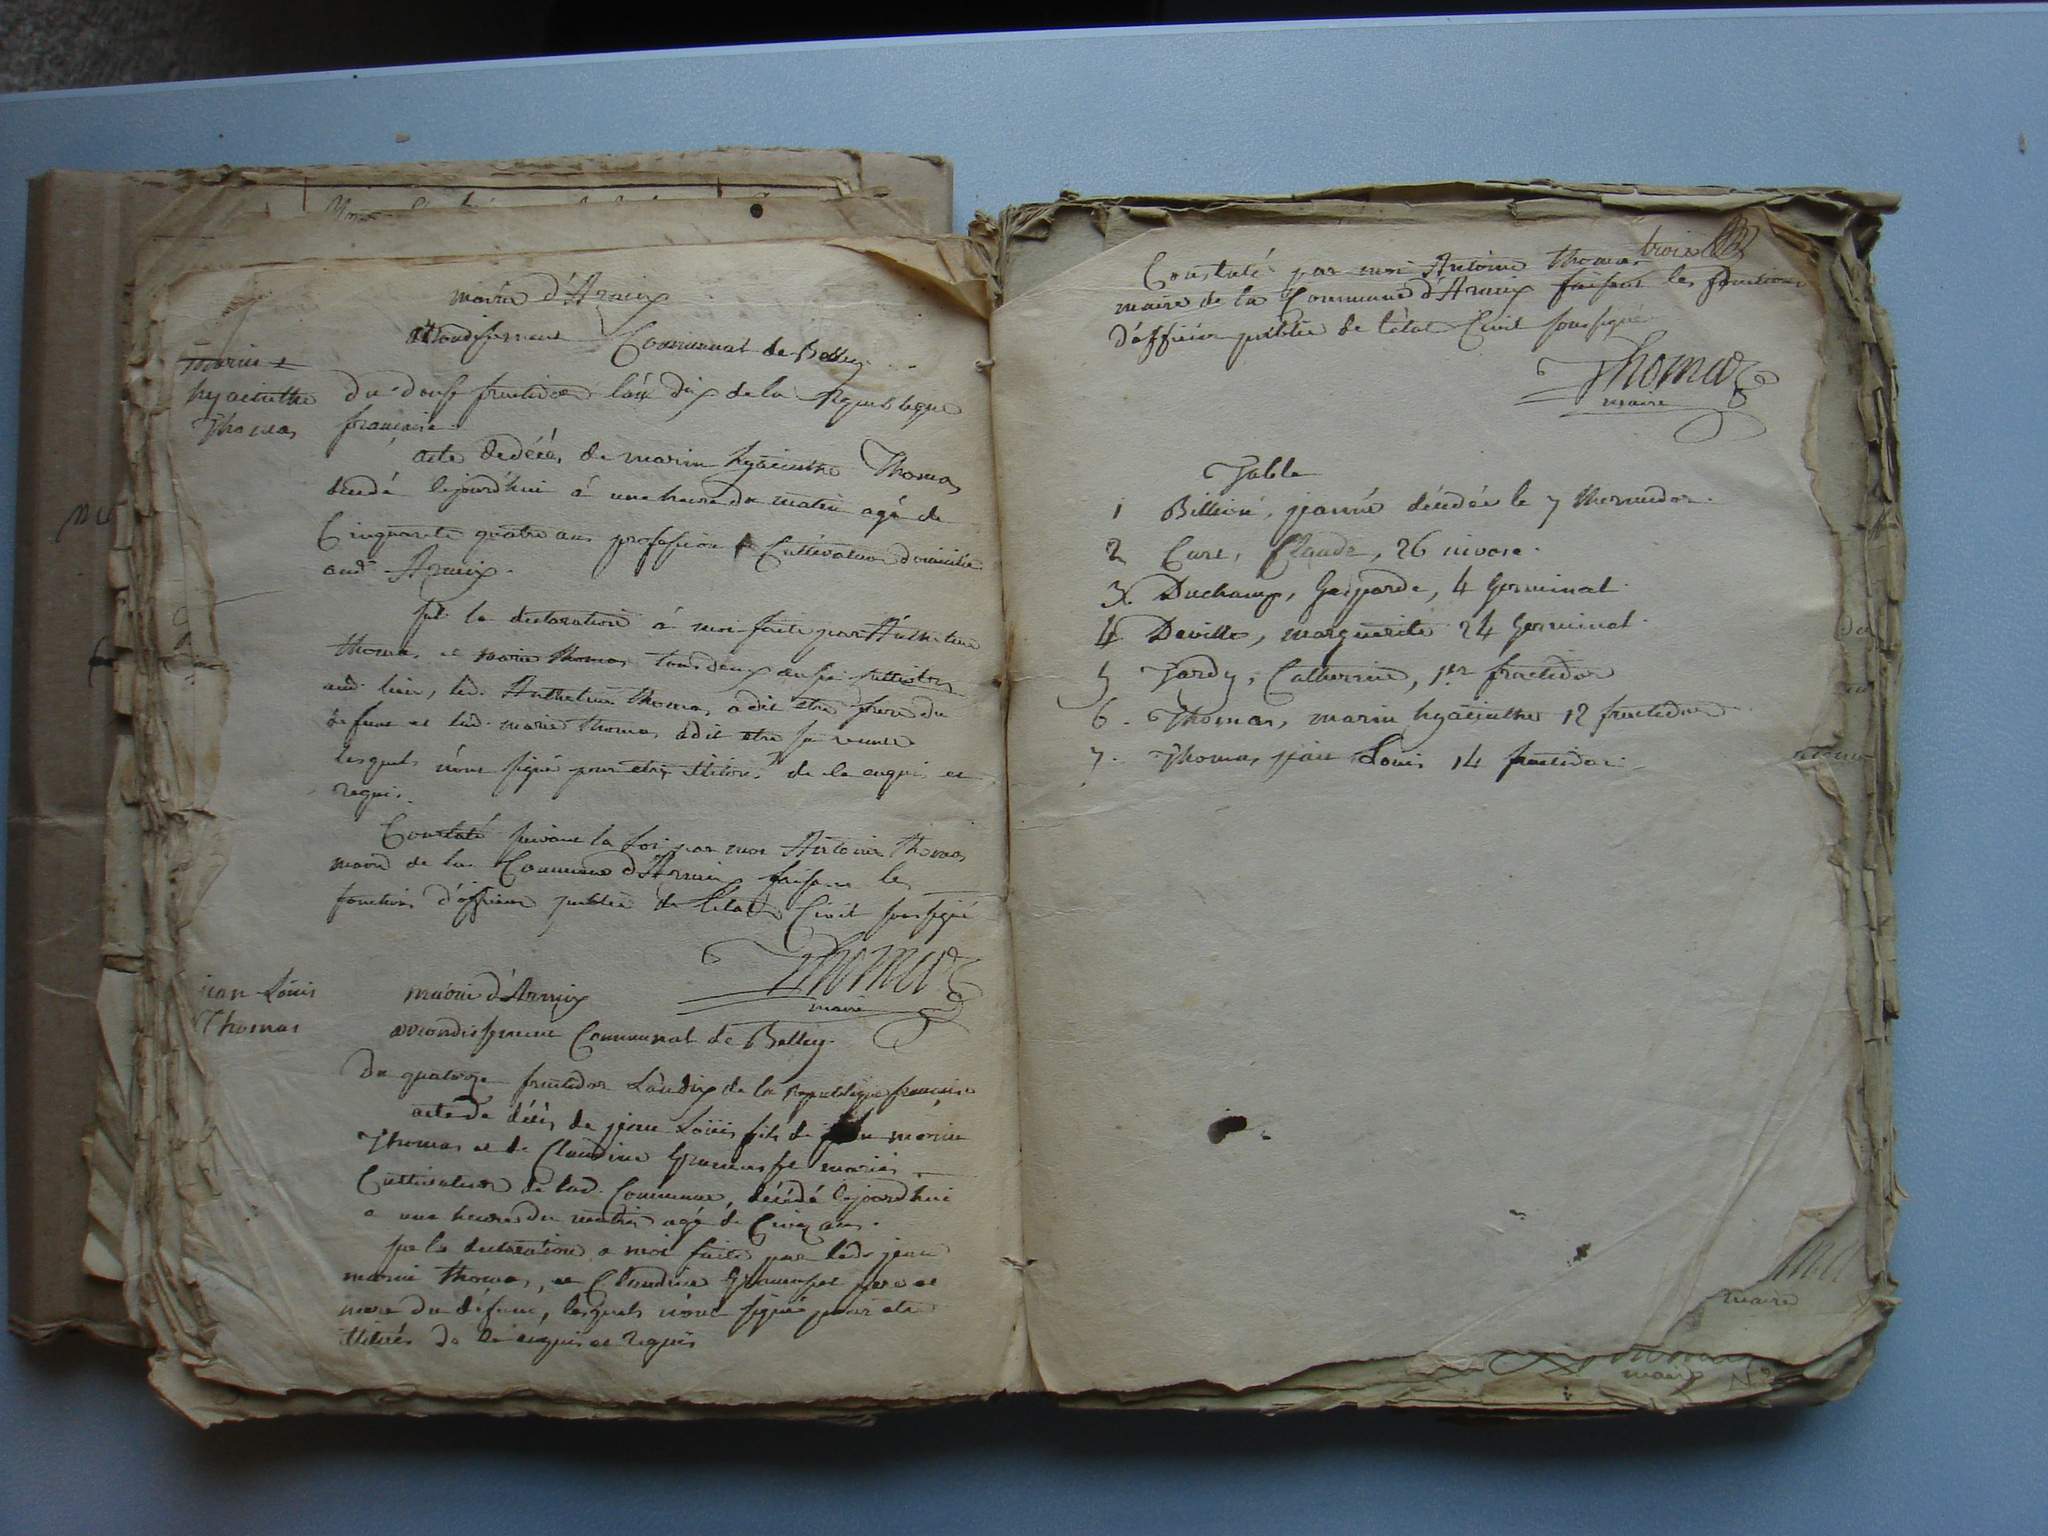 mairie d'Armix
arrondissement Communal de Belley
marin
hyacinthe
Thomas
Du douse fructidor l'an dix de la republique
francaise.
acte de décés de marin hyacinthe Thomas
décédé lejourd'hui à une heure du matin agé de
Cinquante quatre ans profession Cultivateur domicilié
aud. Armix.
sur la declaration à moi faite par Anthelme
thomas et marie thomas tous deux
aud. lieu, led. Anthelme thomas a dit etre frere du
defunt et lad. marie thomas a dit etre sa
lesquels n'ont signé pour etre illitérés de ce enquis et
requis.
Constaté suivant la loi par moi Antoine Thomas
maire de la Commune d'Armix faisant les
fonctions d'officier public de l'état Civil soussigné
Thomas
maire
jean Louis
Thomas
mairie d'Armix
arrondissement Communal de Belley.
Du quatorze fructidor L'an dix de la republique francaise
acte de décès de jean Loüis fils de jean marin
Thomas et de Claudine mariés
Cultivateurs de lad. Commune, décédé lejourd'hui
a une heure du matin agé de Cinq ans.
sur la declaration a moi faite par led. jean
marin thomas, et Claudine pere et
mere du défunt, lesquels n'ont signé pour etre
illitérés de ce enquis et requis
trois
Constaté par moi Antoine thomas
maire de la Commune d'Armix faisant les fonctions
d'officier public de l'état Civil soussigné
Thomas
maire
Table
1 Billion, jeanne décédée le 7 thermidor.
2 Curt, Claude, 26 nivose.
3. Duchamp, Gasparde, 4 Germinal.
4 Deville, marguerite 24 germinal.
5 Tardy, Catherine, 1er fructidor
6. Thomas, marin hyacinthe 12 fructidor
7. Thomas jean Louis 14 fructidor.
maire
maire